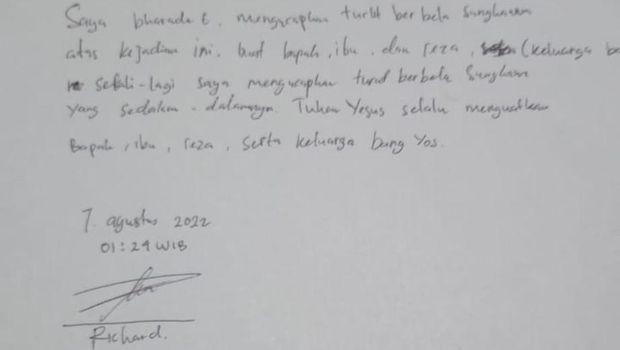 Saya bharada E, mengucapkan turut berbela sungkawa
atas kejadian ini, buat bapak, ibu, dan reza, (keluarga
sekali-lagi saya mengucapkan turut berbela sungkawa
yang sedalam-dalamnya. Tuhan Yesus selalu menguatkan
Bapak, ibu, reza, serta keluarga bang Yos.
7. agustus 2022
01:24 WIB
Richard.